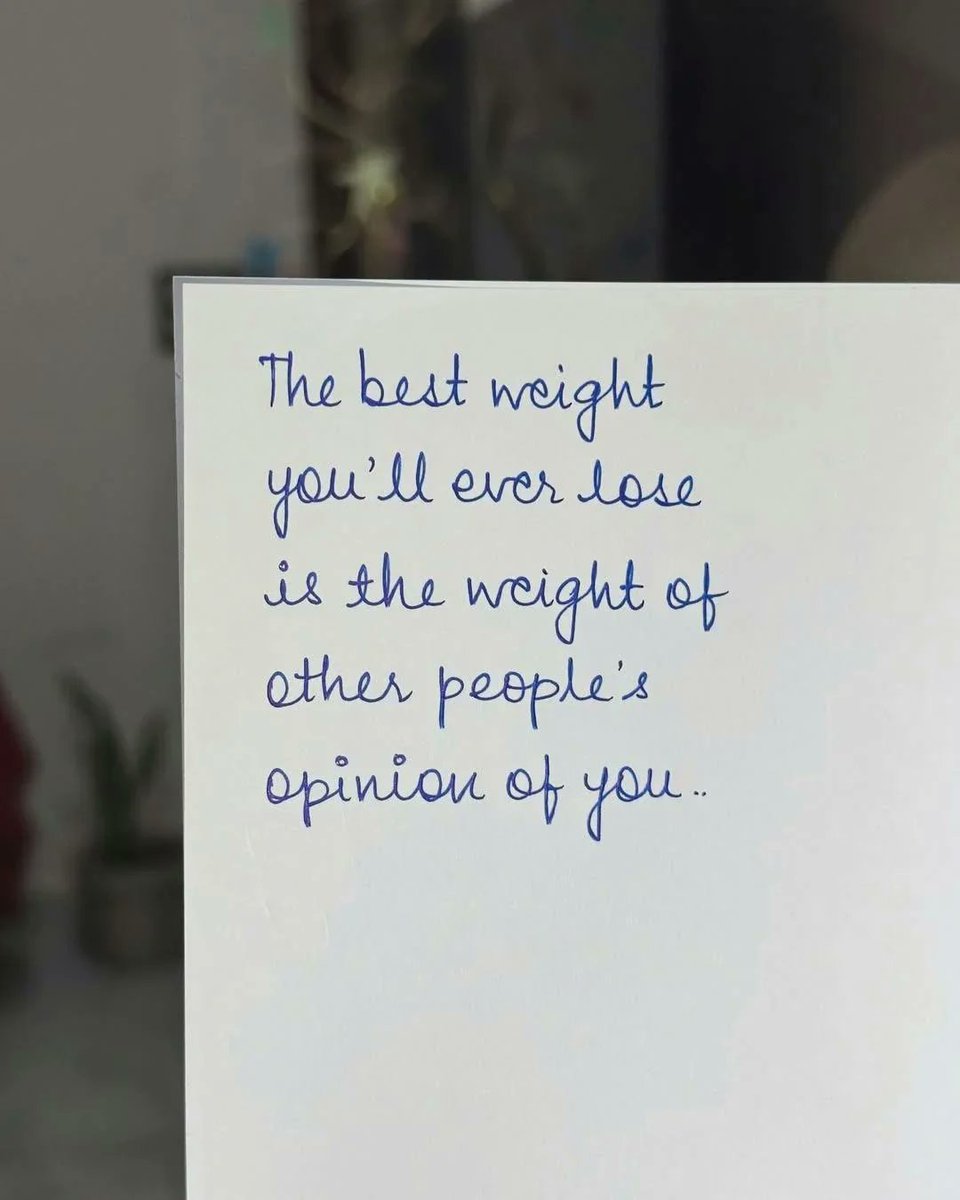 The best weight
you'll ever lose
is the weight of
other people's
opinion of you..